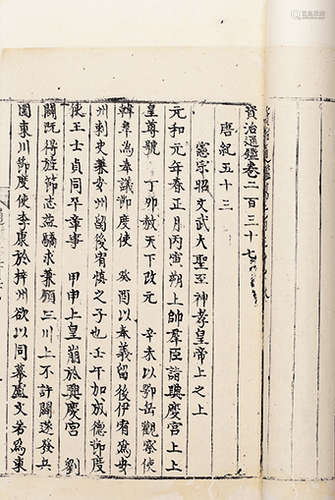 資治通鑑卷二百三十七
唐紀五十三
憲宗昭文武大聖至神孝皇帝上之上
元和元年春正月丙寅朔上帥羣臣詣興慶宮上上
皇尊號 丁卯赦天下改元 辛未以鄂岳觀察使
韓皋為奉義節度使 癸酉以奉義留後伊宥為安
州刺史兼安州留後宥慎之子也壬午加成德節度
使王士貞同平章事 甲申上皇崩於興慶宮 劉
闢既得旌節志益驕求兼領三川上不許闢遂發兵
圍東川節度使李康於梓州欲以同幕盧文若為東